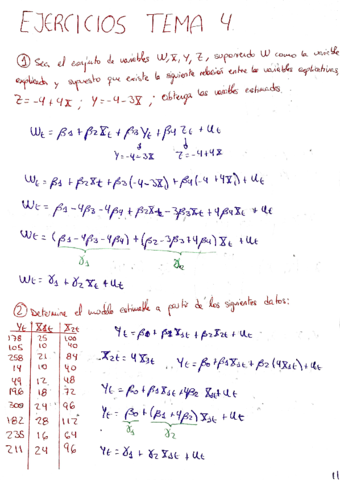 EJERCICIOS TEMA 4
① Sea el conjunto de variables W, X, Y, Z, suponiendo W como la variable
explicada y supuesto que existe la siguiente relación entre las variables explicativas,
Z=-4+4X ; Y=-4-3X ; obtenga las variables estimadas.
Wt = β1 + β2Xt + β3Yt + β4Zt + ut
Y=-4-3X Z=-4+4X
Wt = β1 + β2Xt + β3(-4-3X) + β4(-4+4X) + ut
Wt = β1 - 4β3 - 4β4 + β2Xt - 3β3Xt + 4β4Xt + ut
Wt = (β1 - 4β3 - 4β4) + (β2 - 3β3 + 4β4) Xt + ut
γ1 γ2
Wt = γ1 + γ2 Xt + ut
② Determine el modelo estimable a partir de los siguientes datos:
Yt X1t X2t
178 25 100
105 10 40
258 21 84
14 10 40
49 12 48
196 18 72
300 24 96
182 28 112
235 16 64
211 24 96
Yt = β0 + β1X1t + β2X2t + ut
X2t = 4X1t Yt = β0 + β1X1t + β2(4X1t) + ut
Yt = β0 + β1X1t + 4β2 X1t + ut
Yt = β0 + (β1 + 4β2) X1t + ut
γ1 γ2
Yt = γ1 + γ2 X1t + ut